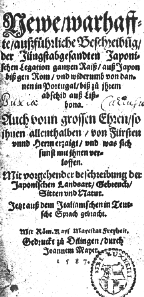 Newe/warhaff-
te/außführliche Beschreibũg/
der Jüngstabgesandten Japoni-
schen Legation gantzen Raiß/auß Japon
biß gen Rom/vnd widerumb von dan-
nen in Portugal/biß zu jhrem
abschid auß Lißbona.
Auch vonn grossen Ehren/so
jhnen allenthalben/von Fürsten
vnnd Herrn erzaigt/vnd was sich
sunst mit jhnen ver-
loffen.
Mit vorgehender beschreibung der
Japonischen Landsart/Gebreuch/
Sitten vnd Natur.
Jetzt auß dem Jtalianischen in Teut-
sche Sprach gebracht.
Mit Röm. Kays. Mayestat Freyheit.
Gedruckt zu Dilingen/durch
Joannem Mayer.
1587